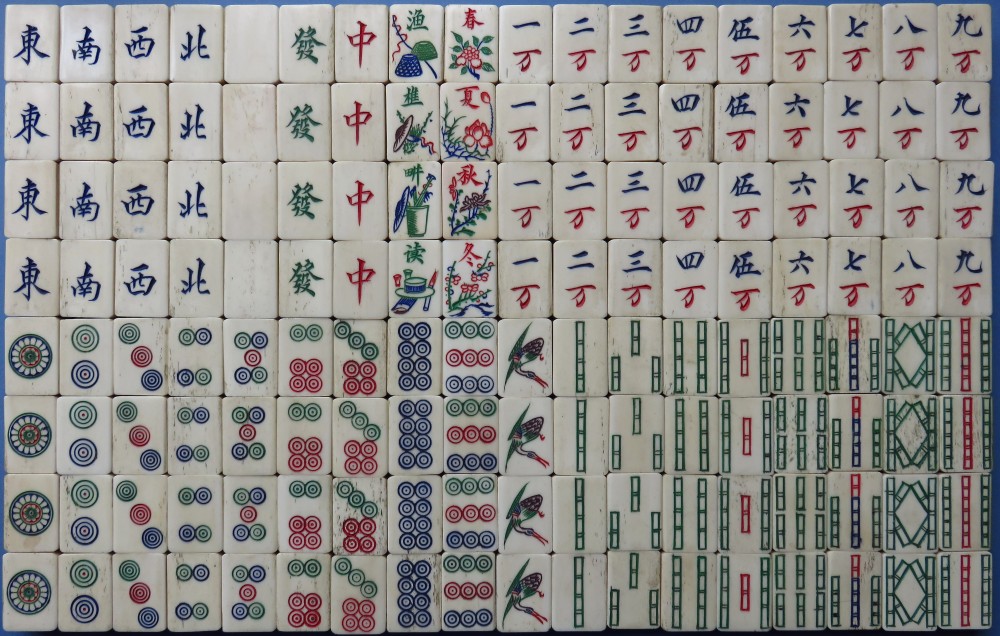 東 南 西 北 發 中 渔 春 一万 二万 三万 四万 伍万 六万 七万 八万 九万
東 南 西 北 發 中 樵 夏 一万 二万 三万 四万 伍万 六万 七万 八万 九万
東 南 西 北 發 中 畊 秋 一万 二万 三万 四万 伍万 六万 七万 八万 九万
東 南 西 北 發 中 读 冬 一万 二万 三万 四万 伍万 六万 七万 八万 九万